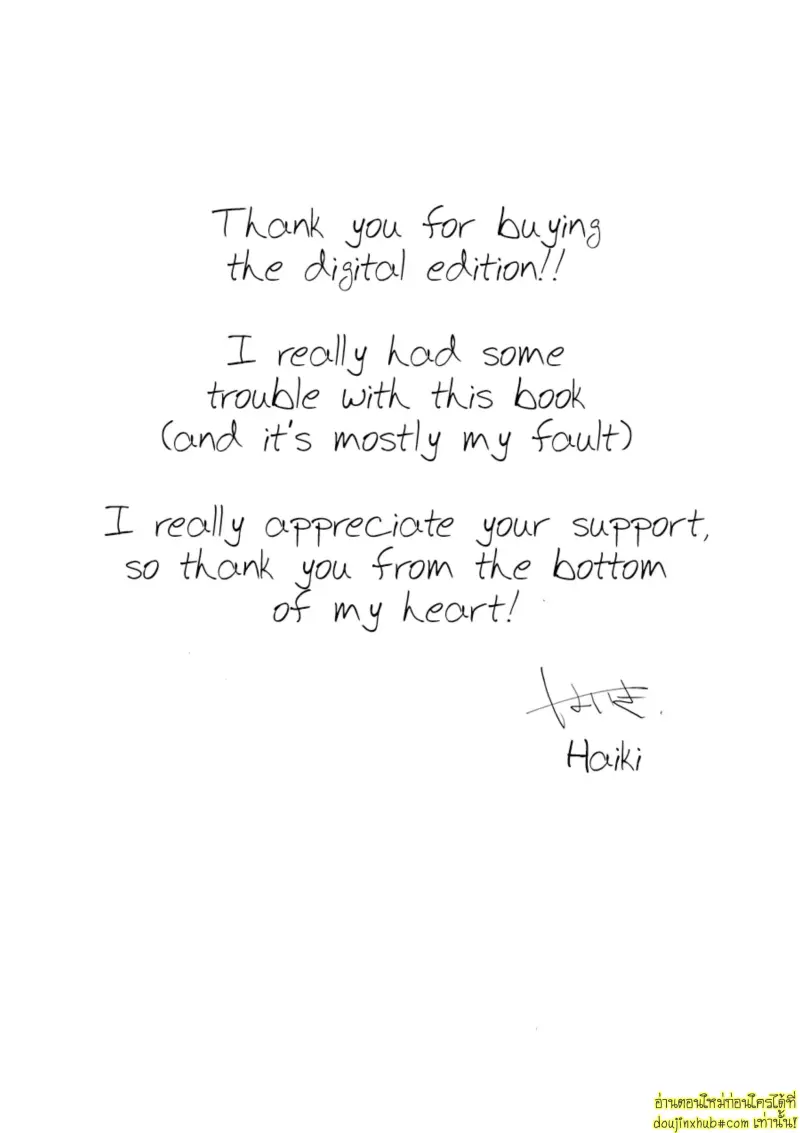 Thank you for buying
the digital edition!!
I really had some
trouble with this book
(and it's mostly my fault)
I really appreciate your support,
so thank you from the bottom
of my heart!
Haiki
อ่านตอนใหม่ก่อนใครได้ที่
doujinxhub#com เท่านั้น!